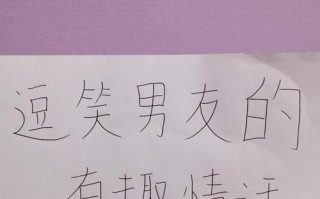 逗笑男友的
有趣情话